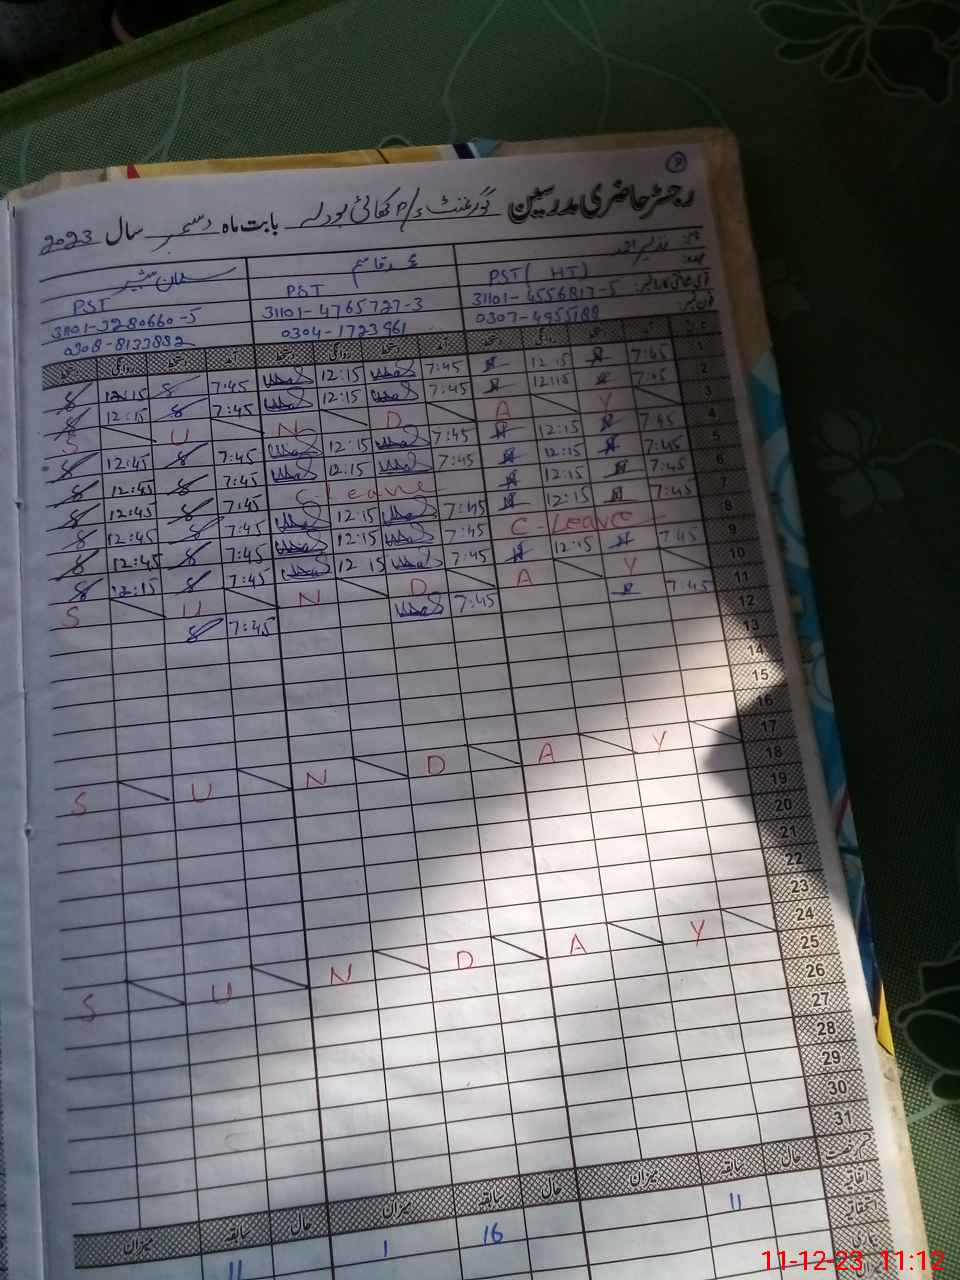 رجسٹر حاضری مدرسین گورنمنٹ بابت ماہ دسمبر سال 2023
محمد قاسم
PST (HT) PST PST
31101-4556817-5 31101-4765727-3 31101-3280660-5
0307-4955188 0304-1723961 0308-8133882
دستخط روانگی دستخط آمد دستخط روانگی دستخط آمد دستخط روانگی دستخط آمد
1 7:45 12:15 7:45 12:15 7:45 12:15
2 7:45 12:15 7:45 12:15 7:45 12:15
3 S U N D A Y
4 7:45 12:15 7:45 12:15 7:45 12:45
5 7:45 12:15 7:45 12:15 7:45 12:45
6 7:45 12:15 C-Leave 7:45 12:45
7 7:45 12:15 7:45 12:15 7:45 12:45
8 C-Leave 7:45 12:15 7:45 12:45
9 7:45 12:15 7:45 12:15 7:45 12:15
10 S U N D A Y
11 7:45 7:45 7:45
12
13
14
15
16
17 S U N D A Y
18
19
20
21
22
23
24 S U N D A Y
25
26
27
28
29
30
31
حال سابقہ میزان حال سابقہ میزان حال سابقہ میزان
اتفاقیہ 11 16 1 11
11-12-23 11:12